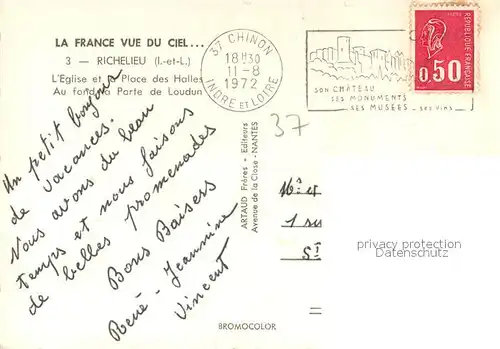 LA FRANCE VUE DU CIEL...
3 – RICHELIEU (I.-et-L.)
L'Eglise et la Place des Halles
Au fond la Porte de Loudun
37 CHINON
18H30
11-8
1972
INDRE ET LOIRE
SON CHÂTEAU
SES MONUMENTS
SES MUSÉES - ses Vins
REPUBLIQUE FRANÇAISE
POSTES
0,50
37
Un petit bonjour
de vacances.
Nous avons du beau
temps et nous faisons
de belles promenades
Bons Baisers
René - Jeannine
Vincent
ARTAUD Frères - Editeurs
Avenue de la Close - NANTES
Mr et
1 
St
privacy protection
Datenschutz
BROMOCOLOR